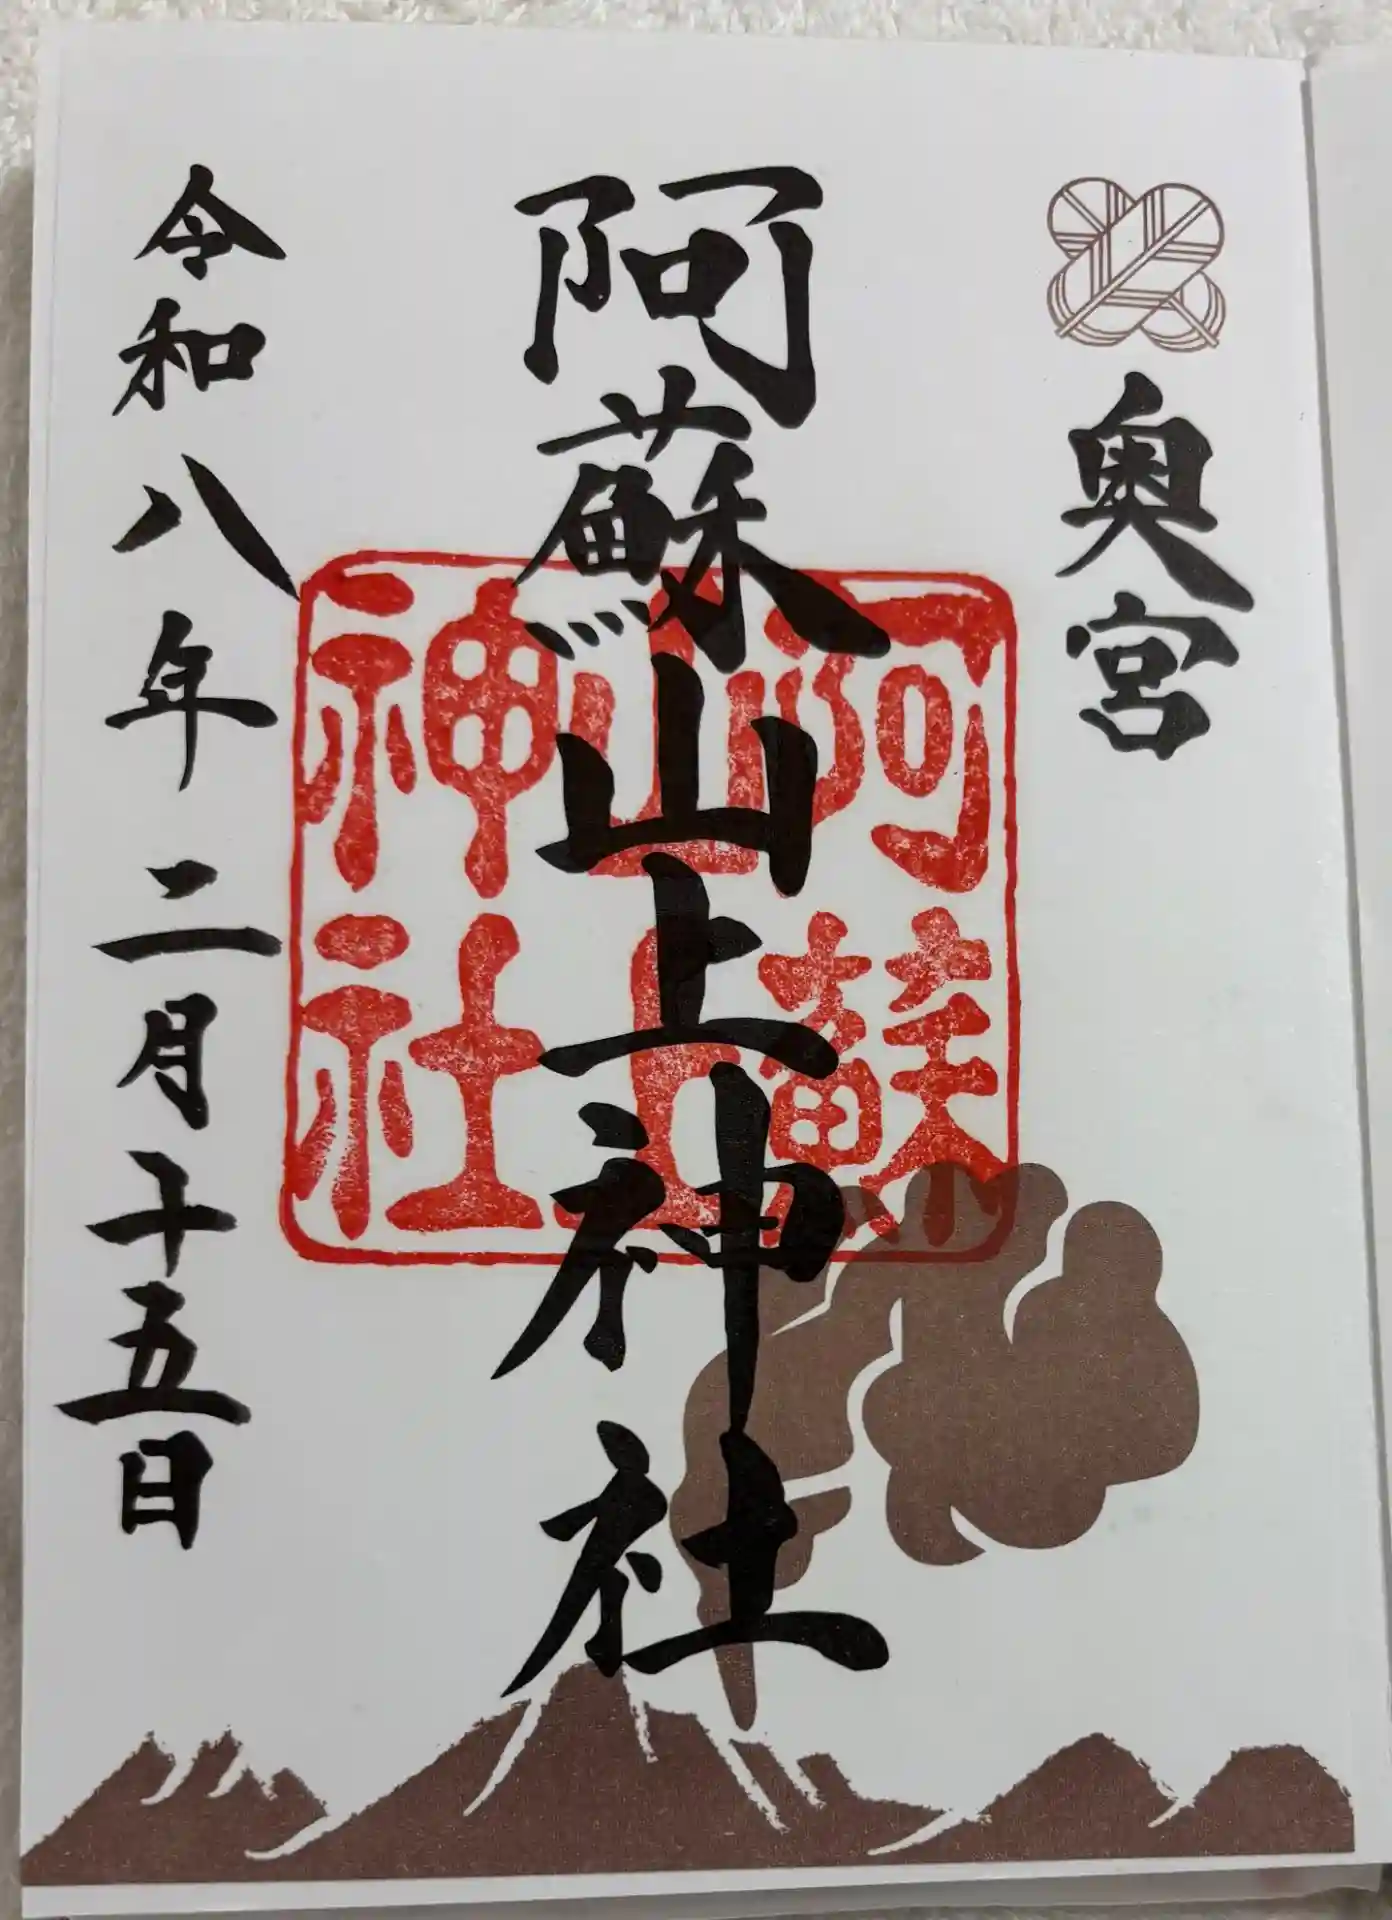 奥宮
阿蘇山上神社
阿蘇
山上
神社
令和八年二月十五日